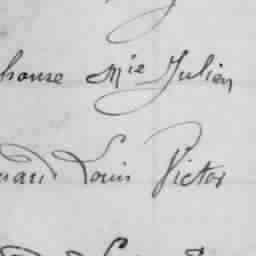 phonse Mie Julien
nari Louis Victor